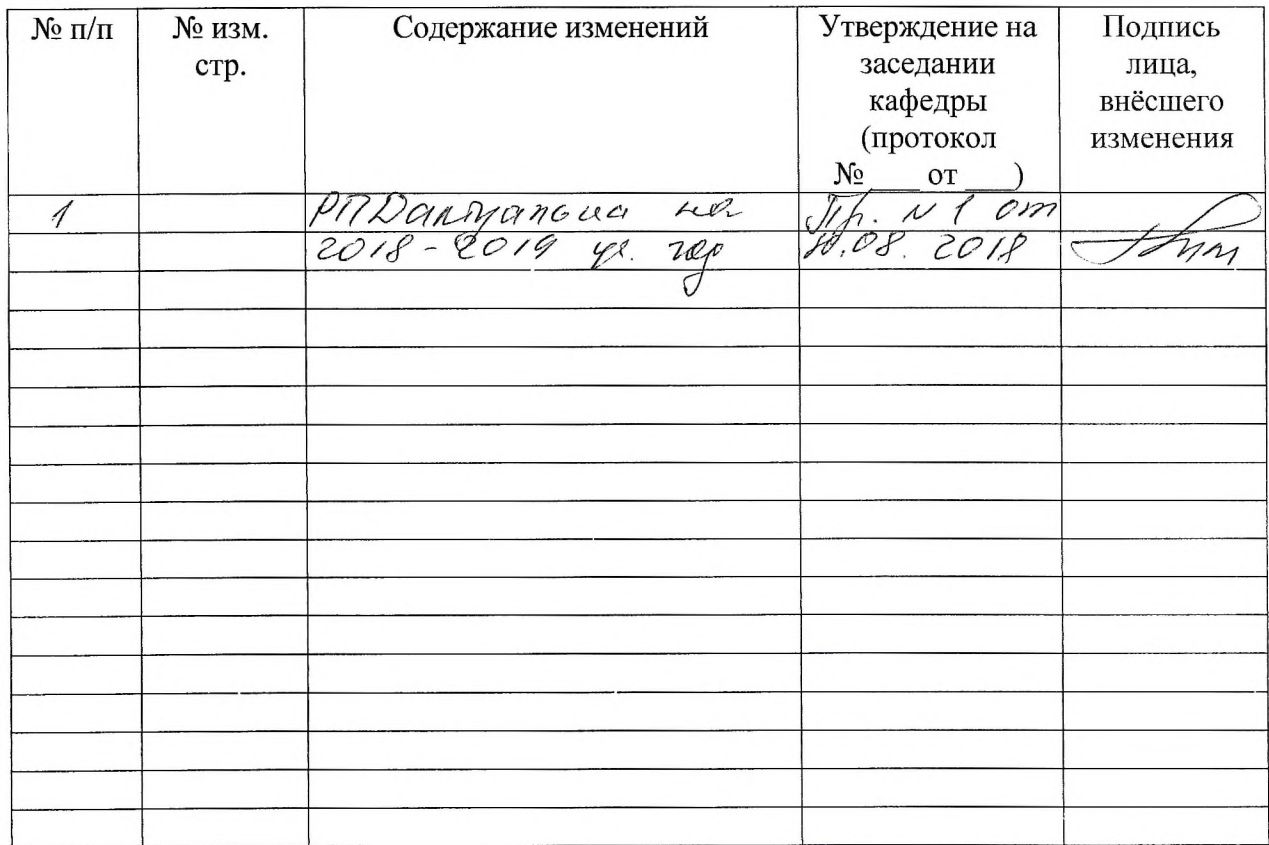 № п/п № изм. стр. Содержание изменений Утверждение на заседании кафедры (протокол № ___ от ___) Подпись лица, внёсшего изменения
1 РПД актуальна на Пр. № 1 от
2018-2019 уч. год .08. 2018